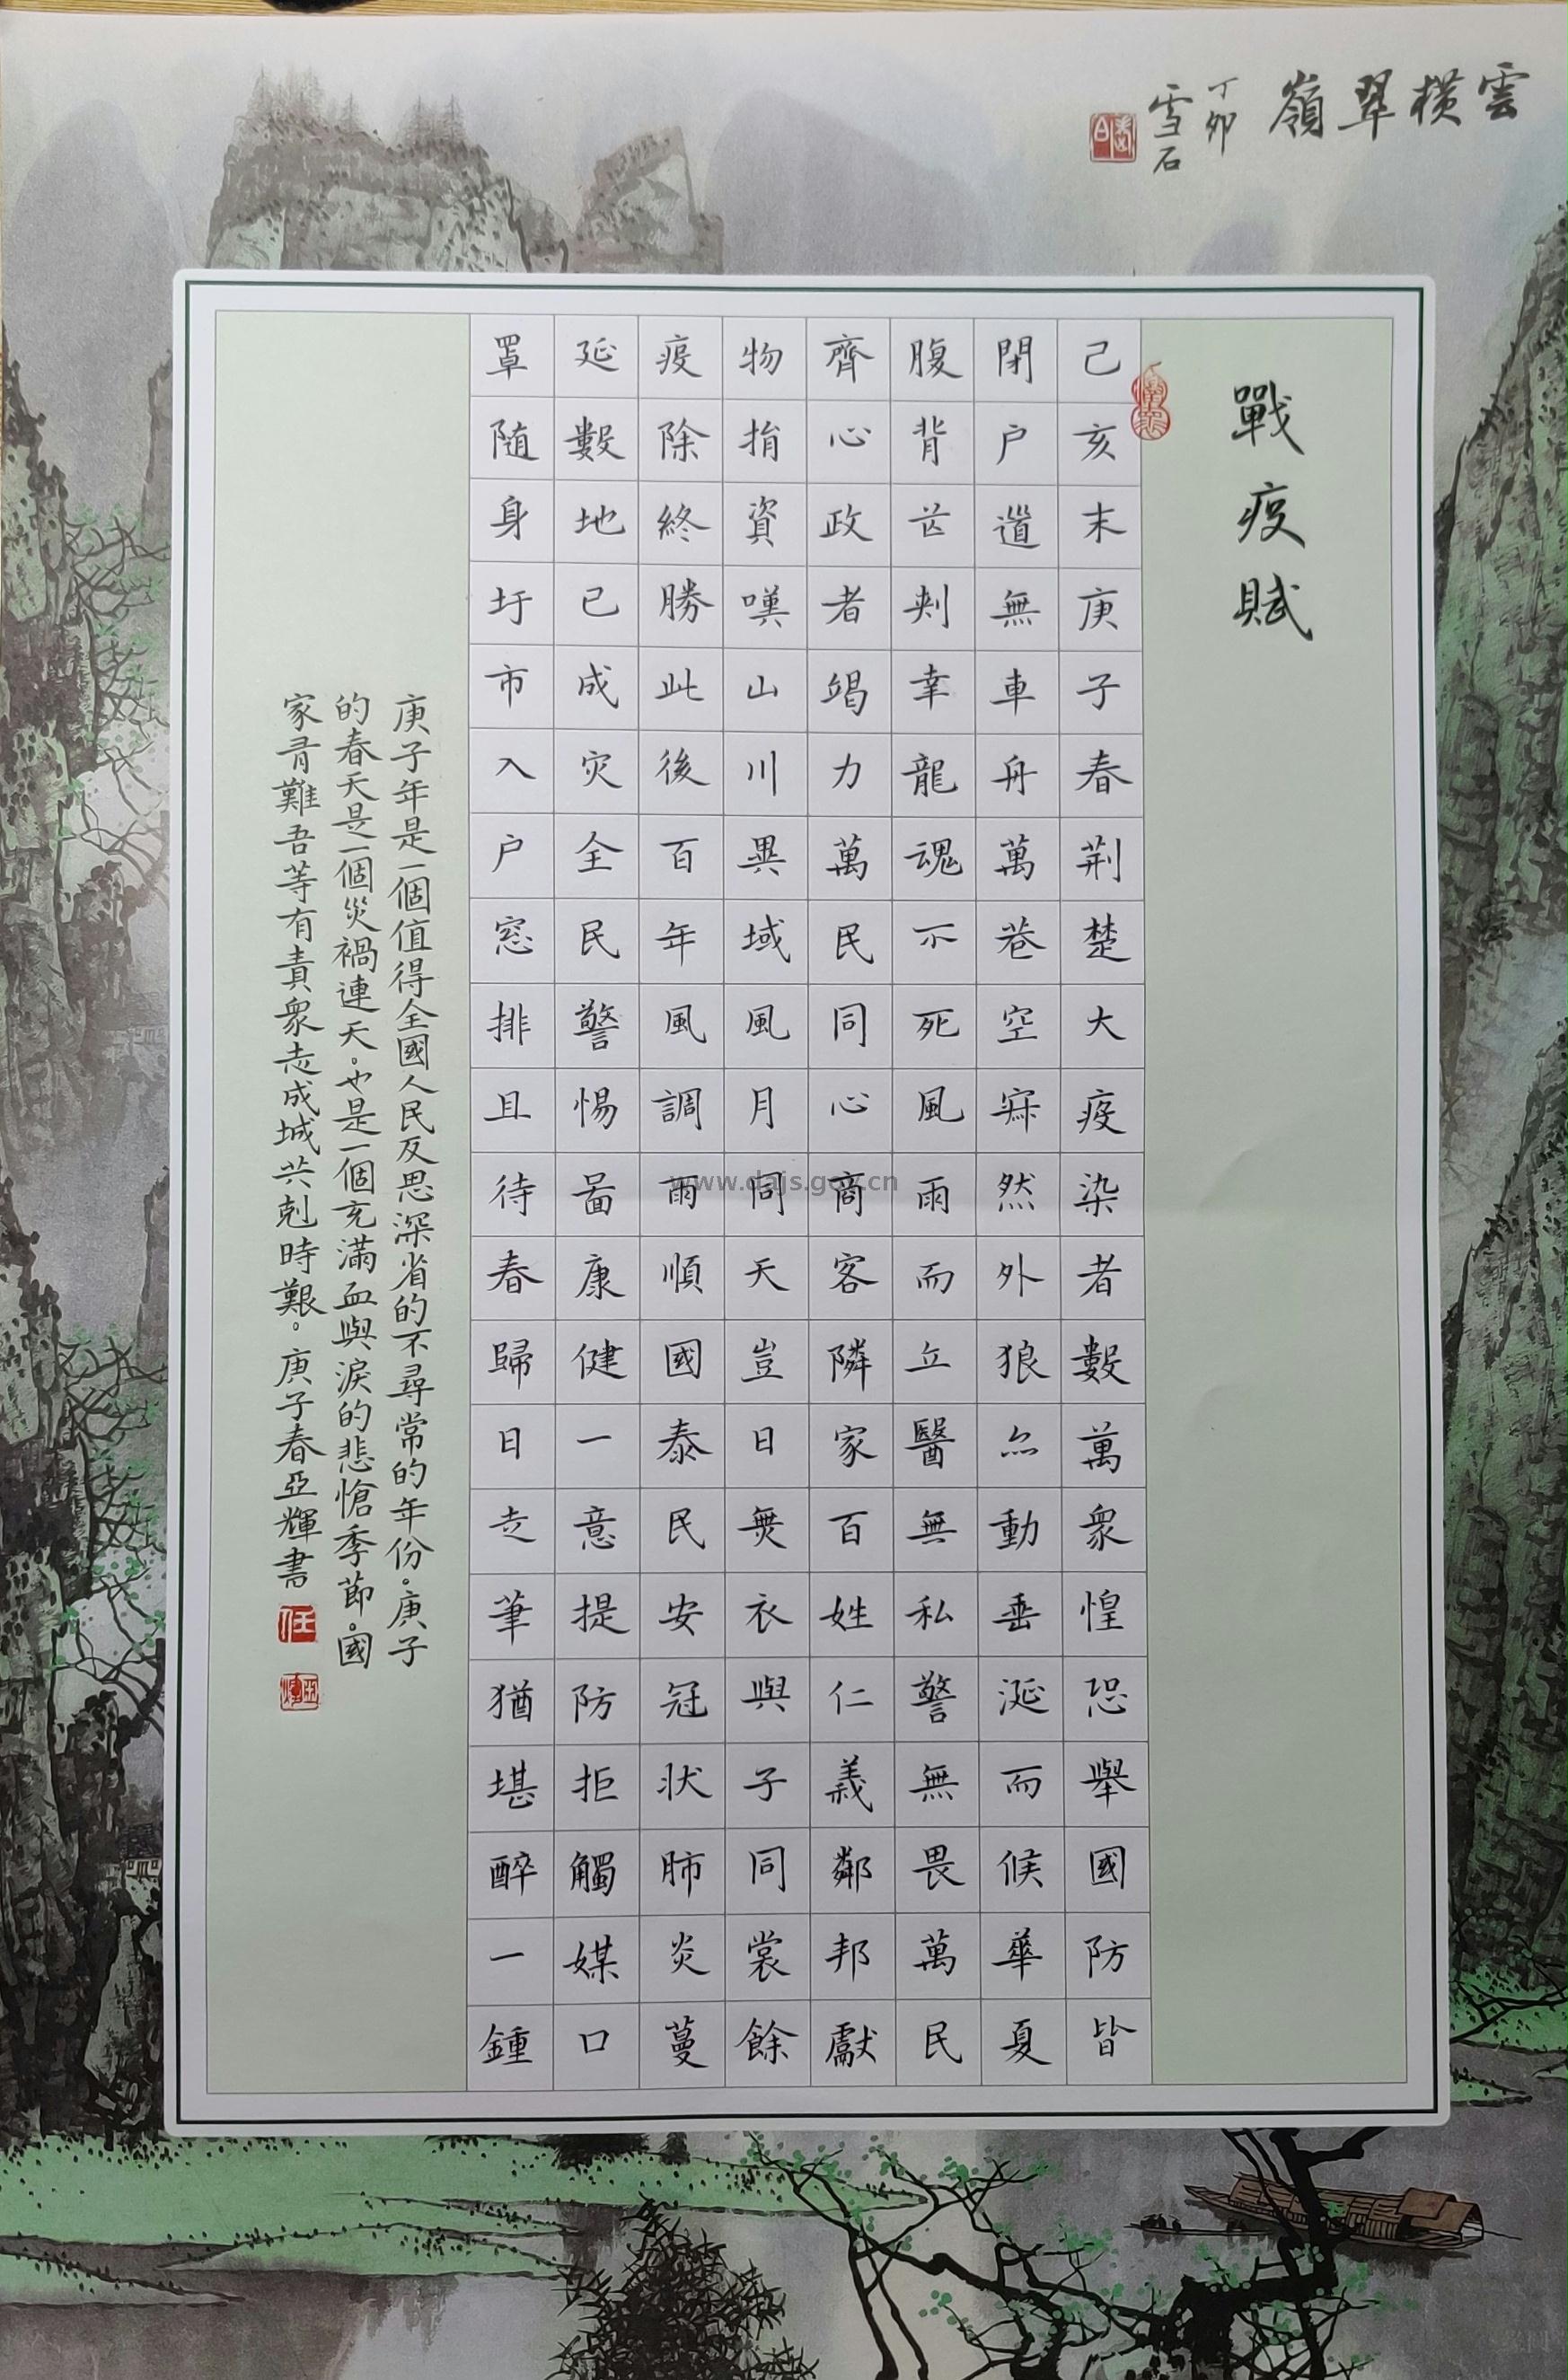 雲橫翠嶺
丁卯
雪石
戰疫賦
己亥末庚子春荆楚大疫染者數萬衆惶恐舉國防皆
閉户道無車舟萬巷空寂然外狼亦動垂涎而候華夏
腹背芒刺幸龍魂不死風雨而立醫無私警無畏萬民
齊心政者竭力萬民同心商客隣家百姓仁義鄰邦獻
物捐資嘆山川異域風月同天豈曰無衣與子同裳餘
疫除終勝此後百年風調雨順國泰民安冠狀肺炎蔓
延數地已成灾全民警惕啚康健一意提防拒觸媒口
罩随身圩市入户窓排且待春歸日走筆猶堪醉一鍾
庚子年是一個值得全國人民反思深省的不尋常的年份。庚子
的春天是一個災禍連天。也是一個充滿血與淚的悲愴季節。國
家有難吾等有責衆志成城共剋時艱。庚子春亞輝書
任
www.dajs.gov.cn